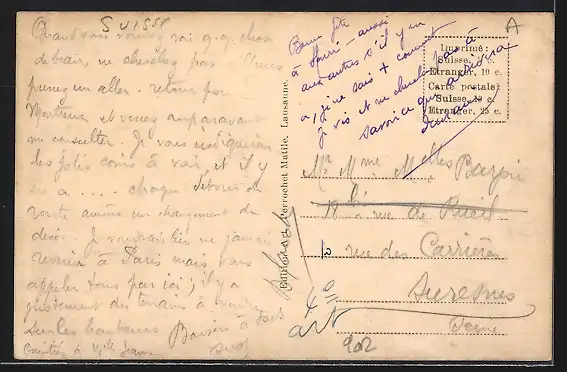 SUISSE
A
Quand vous voudrez voir q.q. chose
de beau, ne cherchez pas
prenez un aller. retour pour
Montreux et venez auparavant
me consulter. Je vous indiquerai
les jolis coins à voir et il y
en a .... chaque détour de
route amène un changement de
décor. Je voudrais bien ne jamais
revenir à Paris mais vous
appeler tous par ici; il y a
justement des terrains à vendre
sur les hauteurs Baisers à tous
Bonne fête
à Henri - aussi
aux autres s'il y en
a, je ne sais + comment
je vis et ne cherche pas à
savoir ce qui arrivera
Imprimé:
Suisse, c.
Etranger, 10 c.
Carte postale:
Suisse, c.
Etranger, 25 c.
Edition Art. Perrochet Matile, Lausanne
Mr Mme Melles
18 rue de Rueil
10 rue des Carrières
Suresnes
Seine
4°
art
902